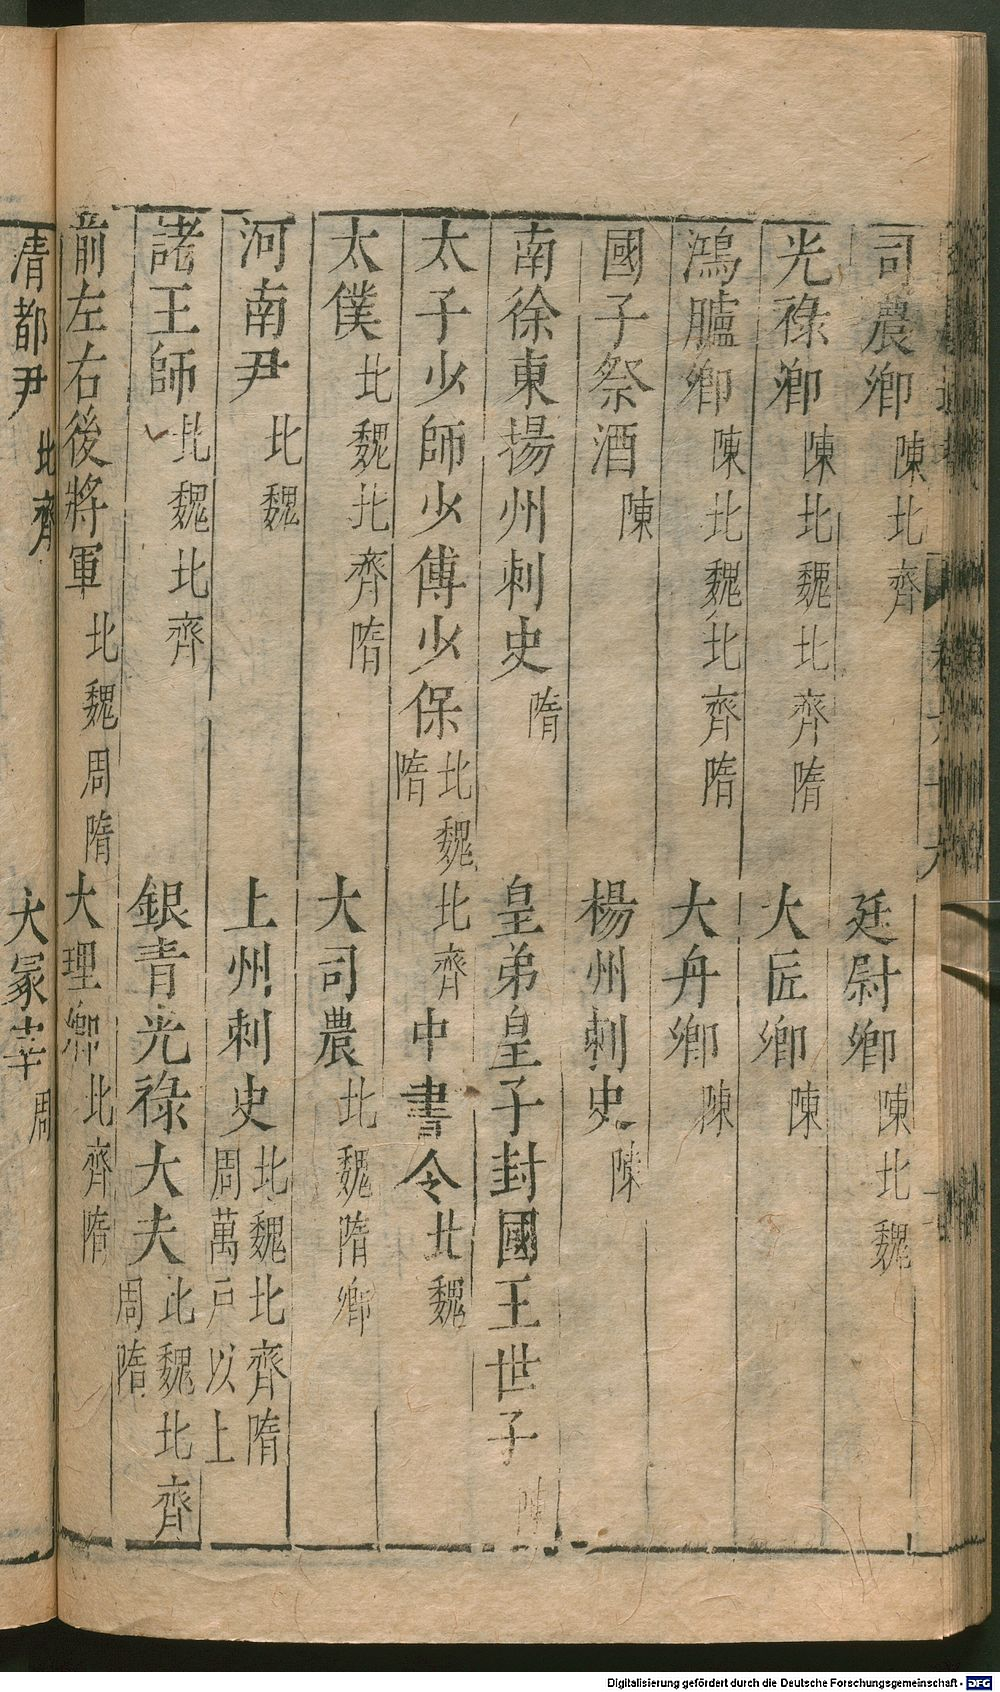 司農卿陳北齊　廷尉卿陳北魏
光祿卿陳北魏北齊隋　大匠卿陳
鴻臚卿陳北魏北齊隋　大舟卿陳
國子祭酒陳　楊州刺史陳
南徐東揚州刺史隋　皇弟皇子封國王世子陳
太子少師少傅少保北魏北齊隋　中書令北魏
太僕北魏北齊隋　大司農北魏隋卿
河南尹北魏　上州刺史北魏北齊隋周萬戶以上
諸王師北魏北齊　銀青光祿大夫北魏北齊周隋
前左右後將軍北魏周隋　大理卿北齊隋
清都尹北齊　大冢宰周
Digitalisierung gefördert durch die Deutsche Forschungsgemeinschaft - DFG